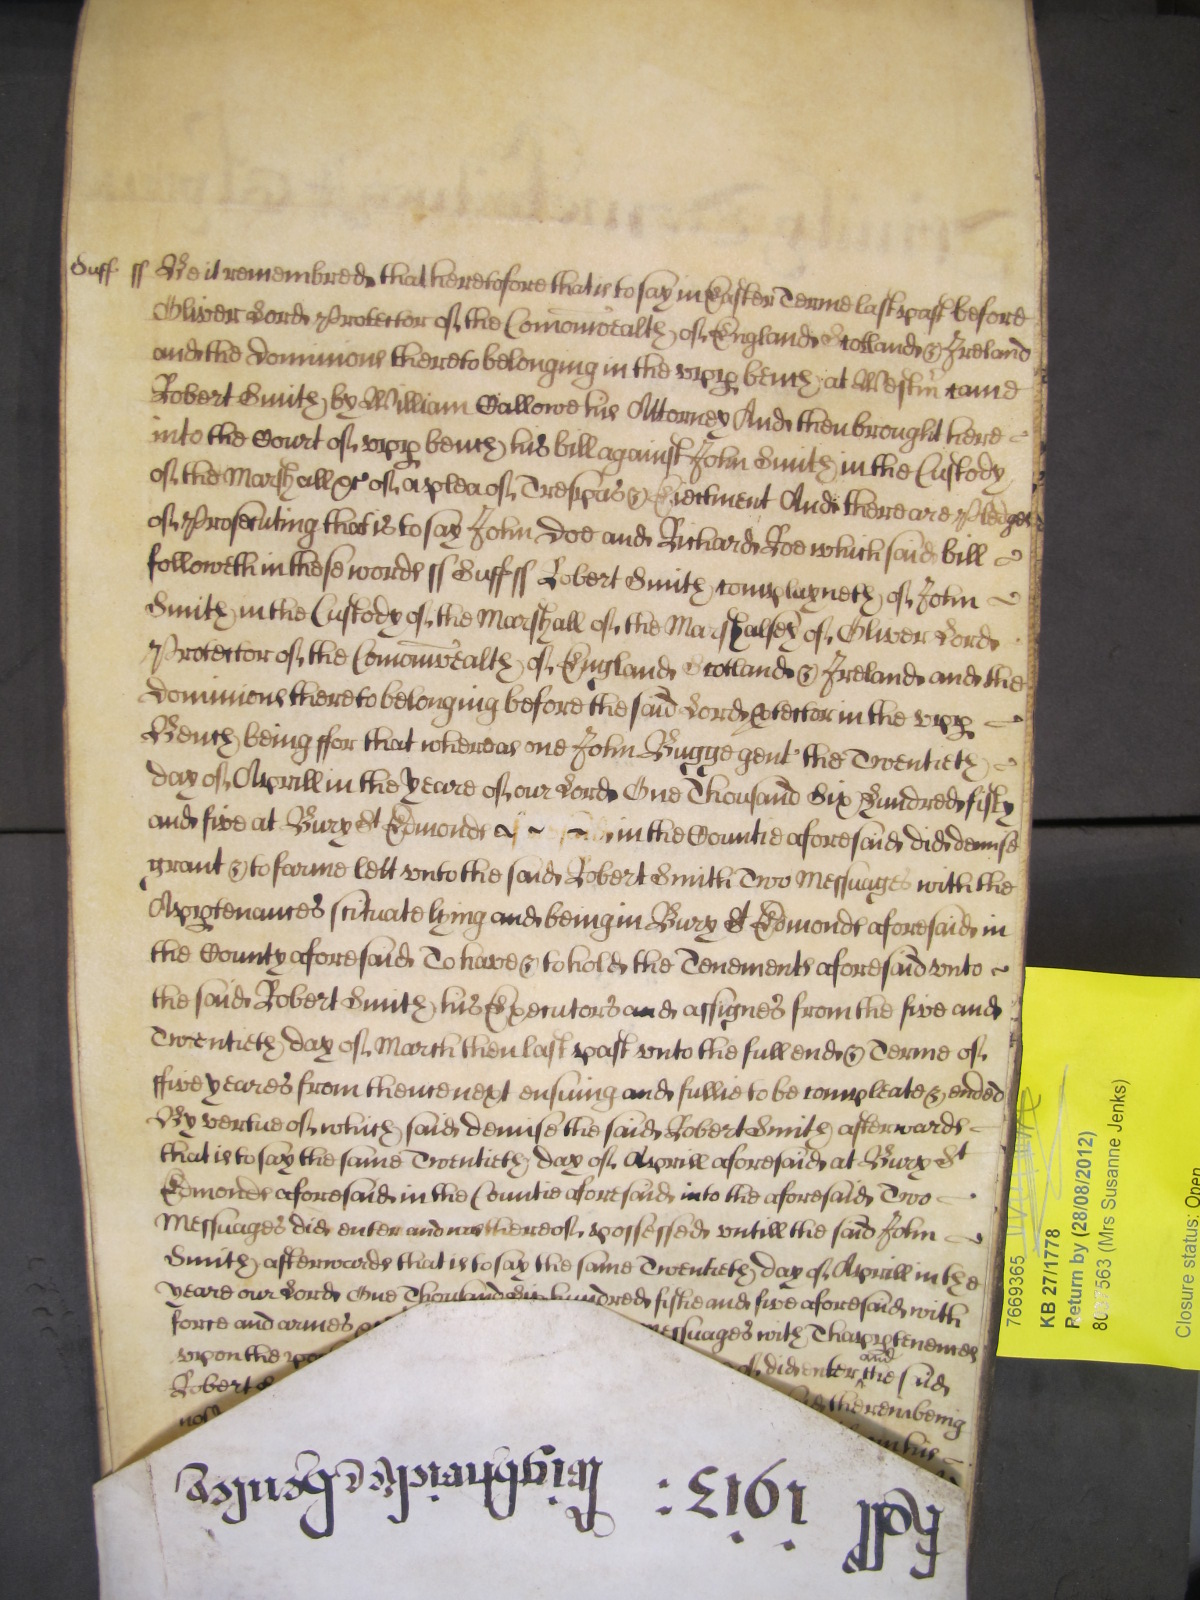 Suff ss Be it remembred that heretofore that is to say in Easter Terme last past before
Oliver Lord Protector of the Com̄onwealth of England Scotland & Ireland
and the Dominions thereto belonging in the upp bench at Westm̄ came
Robert Smith by William Gallowe his Attorney And then brought here
into the Court of upp bench his bill against John Smith in the Custody
of the Marshall &c of a plea of Trespas & Eiectment And there are Pledges
of Prosecuting that is to say John Doe and Richard Roe which said bill
followeth in these words ss Suff ss Robert Smith complayneth of John
Smith in the Custody of the Marshall of the Marshalsey of Oliver Lord
Protector of the Com̄onwealth of England Scotland & Ireland and the
Dominions thereto belonging before the said Lord Ptector in the upp
Bench being ffor that whereas one John Bugge gent the Twentieth
day of Aprill in the yeare of our Lord One Thousand Six Hundred fifty
and five at Bury St Edmonds in the Countie aforesaid did demise
grant & to farme lett unto the said Robert Smith Two Messuages with the
Apptenances scituate lying and being in Bury St Edmonds aforesaid in
the County aforesaid To have & to hold the Tenements aforesaid unto
the said Robert Smith his Executors and assignes from the five and
Twentieth day of March then last past unto the full end & Terme of
ffive yeares from thence next ensuing and fullie to be compleate & ended
By vertue of which said demise the said Robert Smith afterwards
that is to say the same Twentieth day of Aprill aforesaid at Bury St
Edmonds aforesaid in the Countie aforesaid into the aforesaid Two
Messuages did enter and was thereof possessed untill the said John
Smith afterwards that is to say the same Twentieth day of Aprill in the
yeare our Lord One Thousand six hundred fiftie and five aforesaid with
force and armes messuages with Thapptenences
upon the of did enter and the said
Robert S therein being
his
Roll 1913:
7669365
KB 27/1778
Return by (28/08/2012)
(Mrs Susanne Jenks)
Closure status: Open